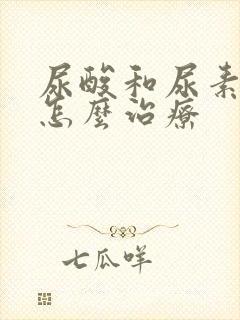 尿酸和尿素
怎麼治療
七瓜咩